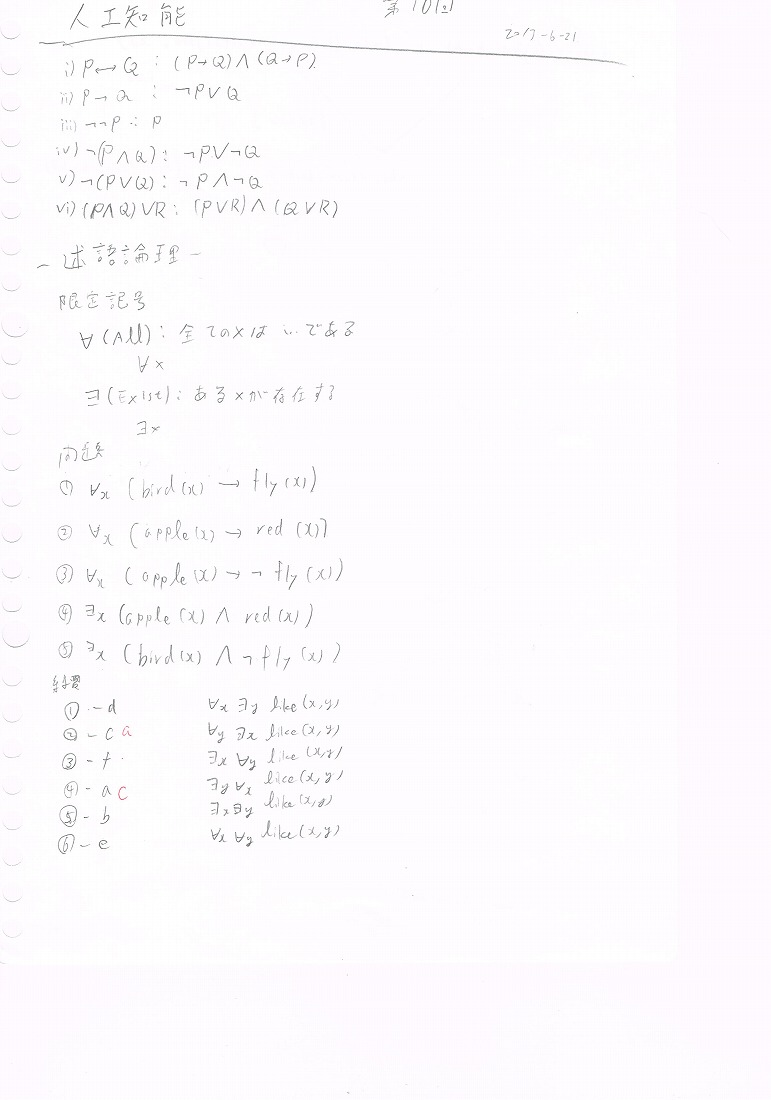 人工知能 第10回
2017-6-21
i) P↔Q : (P→Q)∧(Q→P).
ii) P→Q : ¬P∨Q
iii) ¬¬P : P
iv) ¬(P∧Q) : ¬P∨¬Q
v) ¬(P∨Q) : ¬P∧¬Q
vi) (P∧Q)∨R : (P∨R)∧(Q∨R)
- 述語論理 -
限定記号
∀(All) : 全てのxは…である
∀x
∃(Exist) : あるxが存在する
∃x
問題
① ∀x (bird(x) → fly(x))
② ∀x (apple(x) → red(x))
③ ∀x (apple(x) → ¬fly(x))
④ ∃x (apple(x) ∧ red(x))
⑤ ∃x (bird(x) ∧ ¬fly(x))
練習
① - d ∀x ∃y like(x,y)
② - c a ∀y ∃x like(x,y)
③ - f ∃x ∀y like(x,y)
④ - a c ∃y ∀x like(x,y)
⑤ - b ∃x ∃y like(x,y)
⑥ - e ∀x ∀y like(x,y)